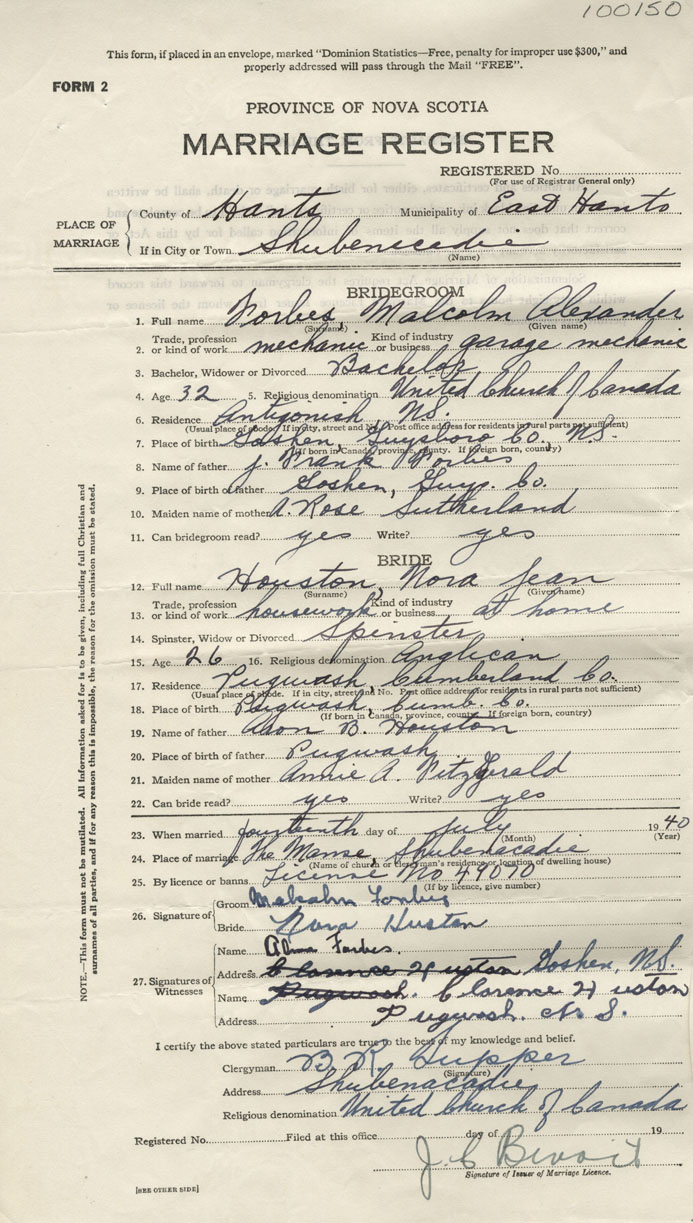 100150
This form, if placed in an envelope, marked "Dominion Statistics—Free, penalty for improper use $300," and
properly addressed will pass through the Mail "FREE".
FORM 2
PROVINCE OF NOVA SCOTIA
MARRIAGE REGISTER
REGISTERED No.
(For use of Registrar General only)
PLACE OF MARRIAGE
County of Hants Municipality of East Hants
If in City or Town Shubenacadie
(Name)
BRIDEGROOM
1. Full name Forbes, Malcolm Alexander
(Surname) (Given name)
2. Trade, profession or kind of work mechanic Kind of industry or business garage mechanic
3. Bachelor, Widower or Divorced Bachelor
4. Age 32 5. Religious denomination United Church of Canada
6. Residence Antigonish N.S.
(Usual place of abode. If in city, street and No. Post office address for residents in rural parts not sufficient)
7. Place of birth Goshen, Guysboro Co. N.S.
(If born in Canada, province, county. If foreign born, country)
8. Name of father J. Frank Forbes
9. Place of birth of father Goshen, Guys. Co.
10. Maiden name of mother A. Rose Sutherland
11. Can bridegroom read? yes Write? yes
BRIDE
12. Full name Houston, Nora Jean
(Surname) (Given name)
13. Trade, profession or kind of work housework Kind of industry or business at home
14. Spinster, Widow or Divorced Spinster
15. Age 26 16. Religious denomination Anglican
17. Residence Pugwash, Cumberland Co.
(Usual place of abode. If in city, street and No. Post office address for residents in rural parts not sufficient)
18. Place of birth Pugwash, Cumb. Co.
(If born in Canada, province, county. If foreign born, country)
19. Name of father B. Houston
20. Place of birth of father Pugwash
21. Maiden name of mother Annie A. Fitzgerald
22. Can bride read? yes Write? yes
23. When married fourteenth day of July 1940
(Month) (Year)
24. Place of marriage The Manse, Shubenacadie
(Name of church or clergyman's residence or location of dwelling house)
25. By licence or banns License No 49070
(If by licence, give number)
26. Signature of
Groom Malcolm Forbes
Bride Nora Huston
27. Signatures of Witnesses
Name Alma Forbes.
Address Clarence Huston Goshen, N.S.
Name Pugwash. Clarence Huston
Address Pugwash. N. S.
I certify the above stated particulars are true to the best of my knowledge and belief.
Clergyman B R Tupper
(Signature)
Address Shubenacadie
Religious denomination United Church of Canada
Registered No. Filed at this office day of 19
J. C Benoit
Signature of Issuer of Marriage Licence.
[SEE OTHER SIDE]
NOTE.—This form must not be mutilated. All information asked for is to be given, including full Christian and
surnames of all parties, and if for any reason this is impossible, the reason for the omission must be stated.